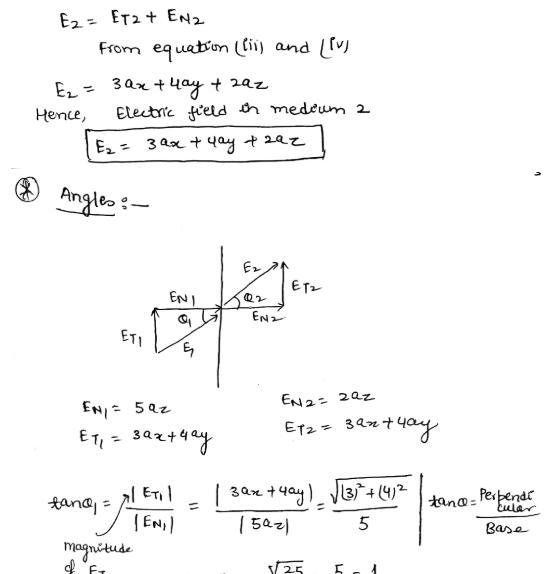 E2 = ET2 + EN2
From equation (iii) and (iv)
E2 = 3ax + 4ay + 2az
Hence, Electric field in medium 2
E2 = 3ax + 4ay + 2az
Angles :-
E2
ET2
EN1
θ2
θ1
EN2
ET1
E1
EN1 = 5az
EN2 = 2az
ET1 = 3ax + 4ay
ET2 = 3ax + 4ay
tanθ1 = |ET1| / |EN1| = |3ax + 4ay| / |5az| = √(3)² + (4)² / 5
tanθ = Perpendicular / Base
magnitude
of ET
√25 = 5 = 1